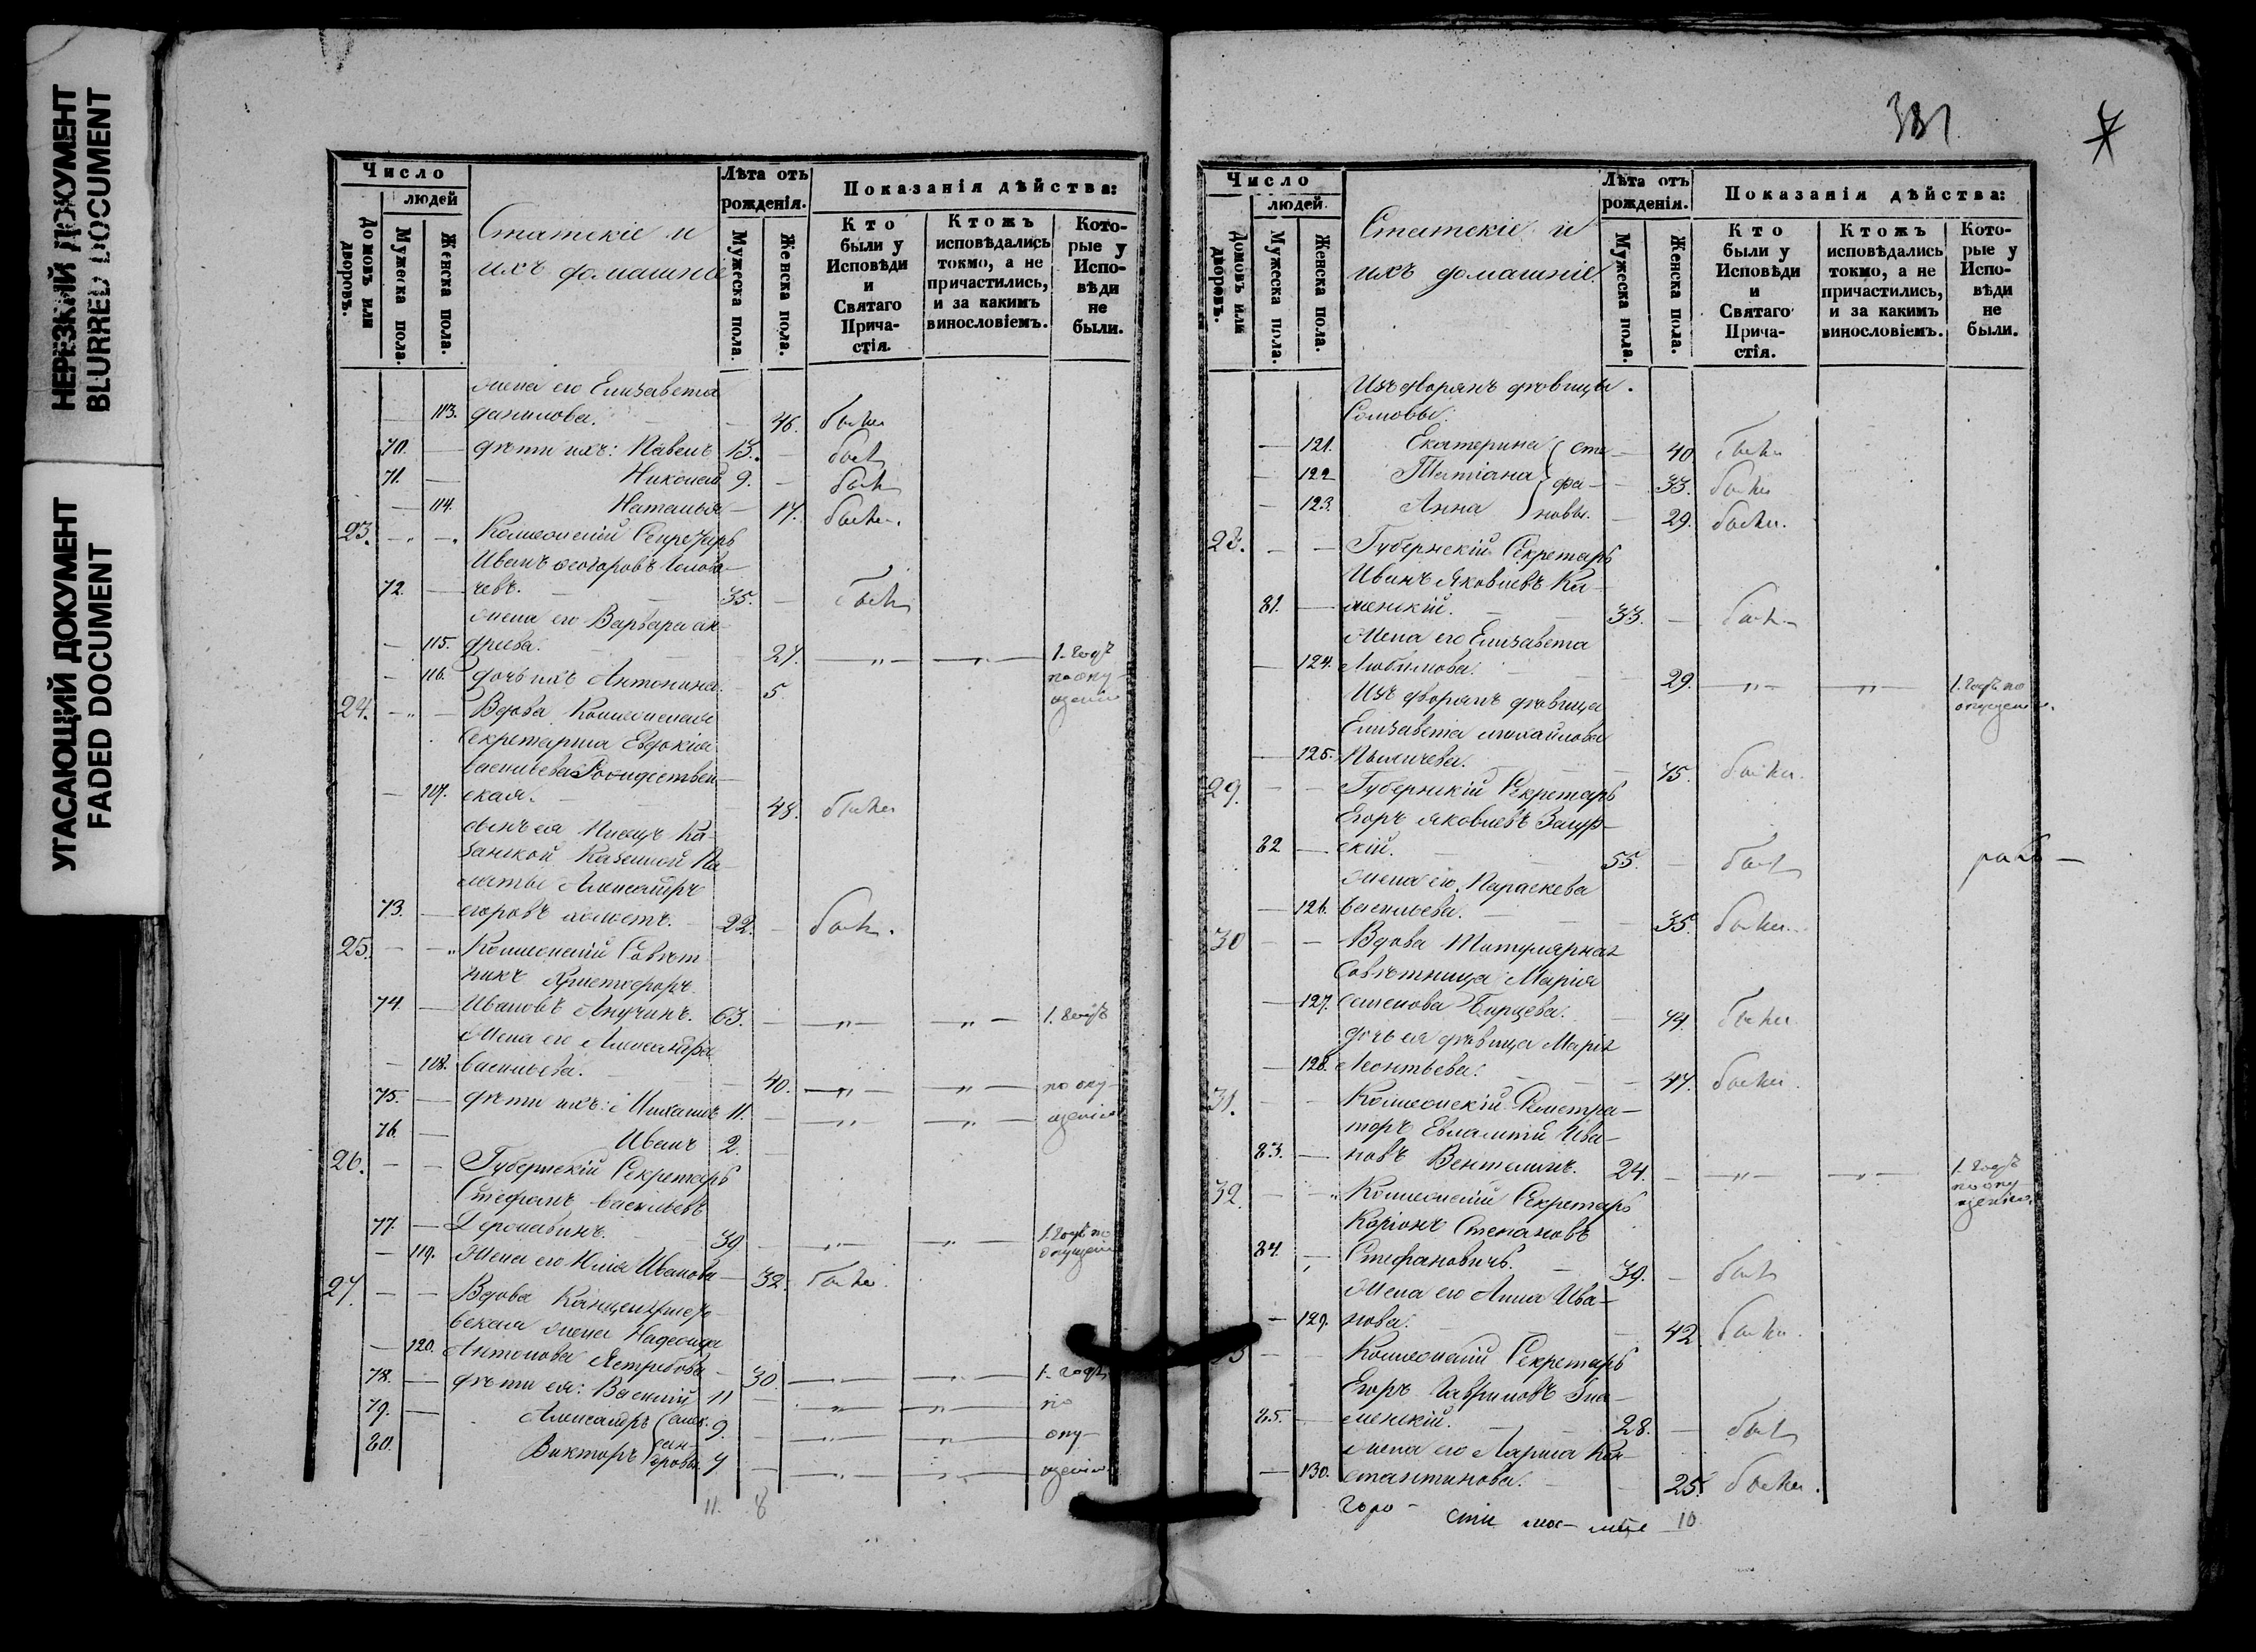 НЕРЕЗКИЙ ДОКУМЕНТ
BLURRED DOCUMENT
УГАСАЮЩИЙ ДОКУМЕНТ
FADED DOCUMENT
Число
людей
Домовъ или дворовъ.
Мужеска пола.
Женска пола.
Статскіе и
ихъ домашніе
Лѣта отъ рожденія.
Мужеска пола.
Женска пола.
Показанія дѣйства:
Кто были у Исповѣди и Святаго Прича-стія.
Ктожъ исповѣдались токмо, а не причастились, и за какимъ винословіемъ.
Кото-рые у Испо-вѣди не были.
жена его Елизавета
113. данилова. 46. была
70. — дѣти ихъ: Павелъ 13. — былъ
71. — Николай 9. — былъ
— 114. Наталья — 17. была.
23. Коллежскій Секретарь
Иванъ Ѳеодоровъ
72. — чевъ. 35. — былъ
жена его Варвара ан-
— 115. дреева. 27. — „ — — „ — 1. годъ
— 116. дочь ихъ Антонина. 5 по опу-
щенію
24. Вдова Коллежская
Секретарша Евдокія
васильева Рождествен-
— 117. ская. 48. была
сынъ ея Писецъ Ка-
занской Казенной Па-
латы Александръ
73. — егоровъ холостъ. 22. — былъ.
25. — — Коллежскій Совѣт-
никъ Христофоръ
74. — Ивановъ Анучинъ. 63. — „ — — „ — 1. годъ
Жена его Александра
— 118. васильева. 40. — „ — — „ — по опу-
75. — дѣти ихъ: Михаилъ 11. — „ — — „ — щенію
76. — Иванъ 2. —
26. — — Губернскій Секретарь
Стефанъ васильевъ
77. — Державинъ. 39 — „ — — „ — 1. годъ по
опущенію
— 119. Жена его Юлія Иванова — 32. была.
27. — — Вдова Канцеляристо-
вская жена Надежда
— 120. Антонова Ястребова 30. — „ — 1. годъ
78. — дѣти ея: Василій 11 — „ — — „ — по
79. — Александръ алек- 9. — „ — опу-
80. Викторъ сан-дровы 7 — „ — — „ — щенію
11. 8
381
Число
людей.
Домовъ или дворовъ.
Мужеска пола.
Женска пола.
Статскіе и
ихъ домашніе.
Лѣта отъ рожденія.
Мужеска пола.
Женска пола.
Показанія дѣйства:
Кто были у Исповѣди и Святаго Прича-стія.
Ктожъ исповѣдались токмо, а не причастились, и за какимъ винословіемъ.
Кото-рые у Испо-вѣди не были.
Изъ дворянъ дѣвицы
Сомовы.
— 121. Екатерина Сте — 40. была
— 122 Татіана фа- — 33. была
— 123. Анна новы. — 29. была.
28. — — Губернскій Секретарь
Иванъ Яковлевъ Ка-
81. — менскій. 33. — былъ
Жена его Елизавета
— 124. Любимова. 29. — „ — — „ — 1. годъ по
опущенію.
Изъ дворянъ дѣвица
Елизавета михайлова
— 125. 75. была.
29. — — Губернскій Секретарь
Егоръ яковлевъ
82 — скій. 55. — былъ
жена его Параскева
— 126. васильева. 35. была.
30 — — Вдова Титулярная
Совѣтница Марія
— 127. семенова Бурцева. 74. была
дочь ея дѣвица Марія
— 128. Леонтьева. — 47. была.
31. — — Коллежскій Регистра-
торъ Евлампій Ива-
83. — новъ 24. — „ — — „ — 1. годъ
по опу
щенію.
32. — „ Коллежскій Секретарь
Степановъ
84. — Стефановичъ. — 39. — былъ
Жена его Анна Ива-
— 129. нова. 42. была.
33 — — Коллежскій Секретарь
Егоръ Гавриловъ Зна-
85. — менскій. 28. — былъ
жена его Лариса Кон-
— 130. стантинова. 25. была.
10